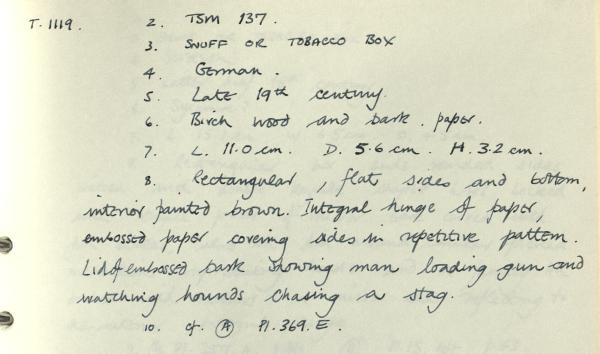 T. 1119. 2. TSM 137.
3. SNUFF OR TOBACCO BOX
4. German.
5. Late 19th century.
6. Birch wood and bark. paper.
7. L. 11.0 cm. D. 5.6 cm. H. 3.2 cm.
8. Rectangular, flat sides and bottom,
interior painted brown. Integral hinge of paper,
embossed paper covering sides in repetitive pattern.
Lid of embossed bark showing man loading gun and
watching hounds chasing a stag.
10. cf. (A) Pl. 369. E.